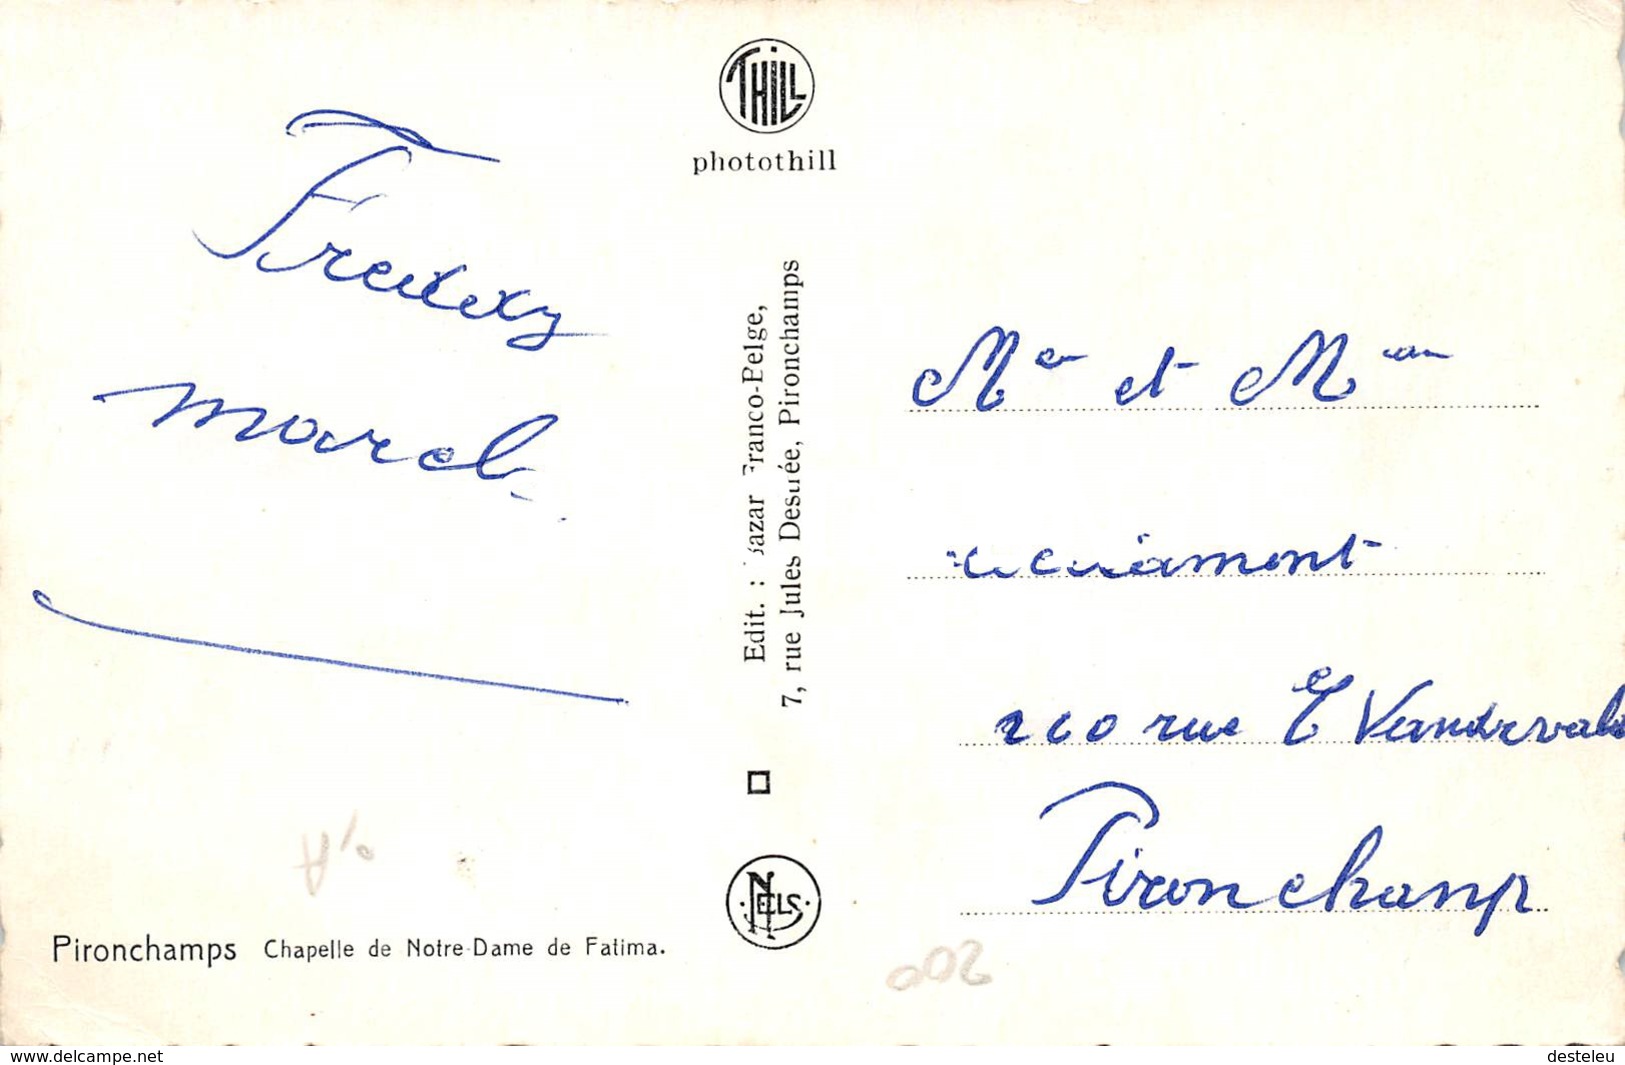 THILL
photothill
Freddy
Marcel
Edit. : Bazar Franco-Belge,
7, rue Jules Destrée, Pironchamps
Mr et Mme
210 rue E Vanderval
Pironchamp
NELS
Pironchamps Chapelle de Notre-Dame de Fatima.
200
www.delcampe.net
desteleu